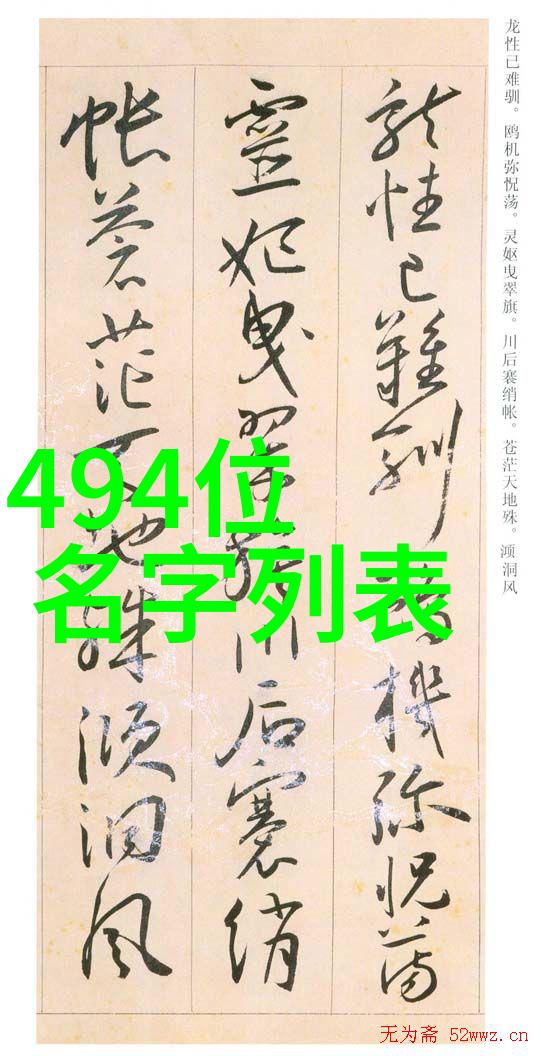 龙性已难驯。鸥机弥怳荡。灵妪曳翠旗。川后褰绡帐。苍茫天地殊。澒洞风
龍性已難馴鷗機弥怳蕩
靈妃曳翠旗川后褰綃
帳蒼茫天地殊澒洞風
494位
名字列表
无为斋 52wwz.cn